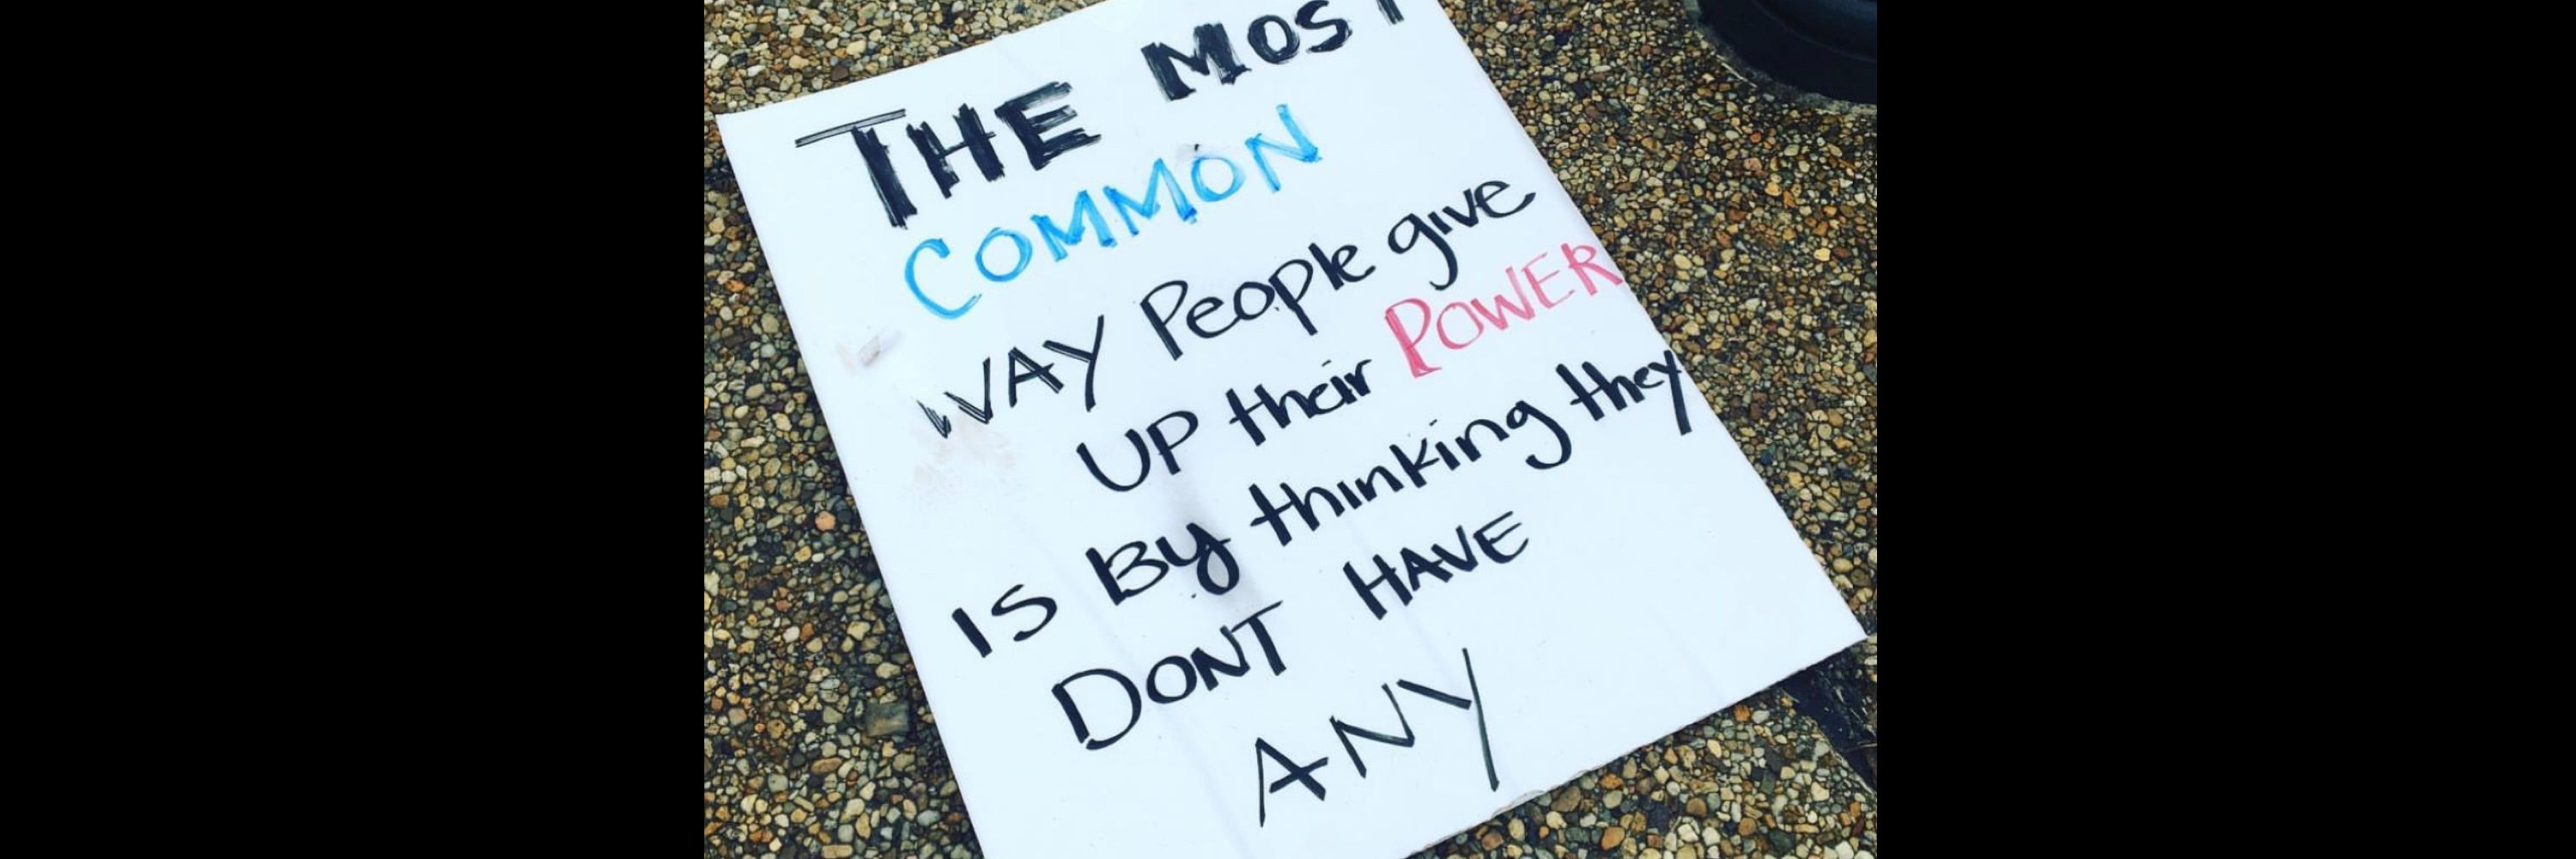 THE MOST
COMMON
WAY People give
UP their POWER
IS By thinking they
DONT HAVE
ANY